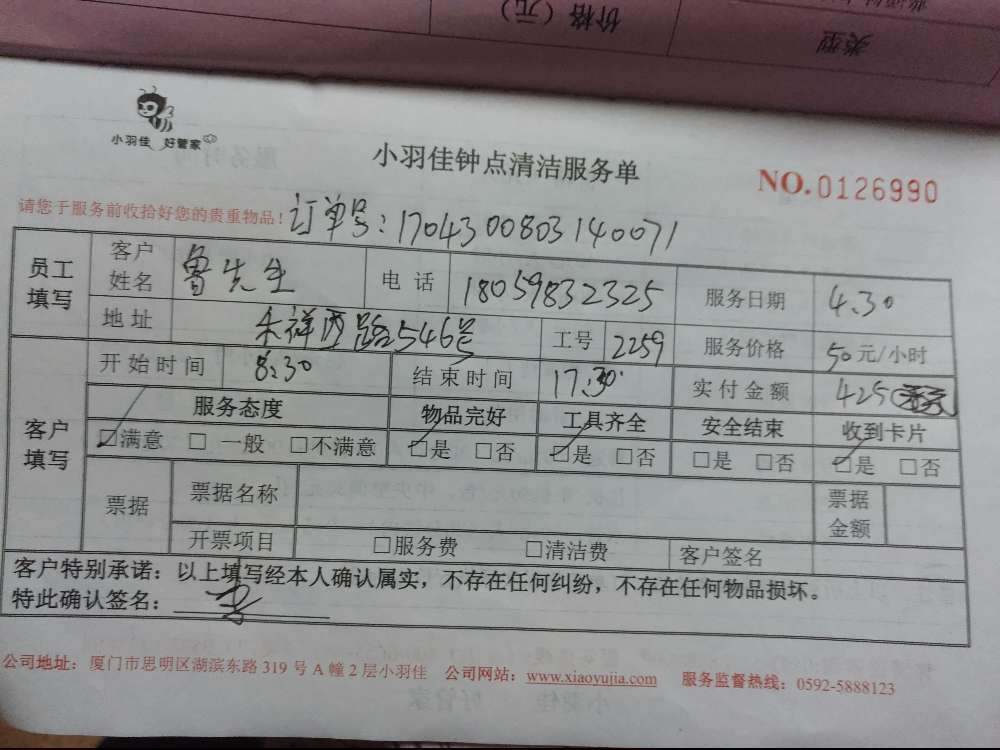 价格（元）
类型
小羽佳 好管家
小羽佳钟点清洁服务单
NO.0126990
请您于服务前收拾好您的贵重物品！订单号：170430080314 0071
员工填写 客户姓名 鲁先生 电话 18059832325 服务日期 4.30
地址 禾祥西路546号 工号 2259 服务价格 50元/小时
开始时间 8:30 结束时间 17:30 实付金额 425
客户填写 服务态度 物品完好 工具齐全 安全结束 收到卡片
☑满意 □一般 □不满意 ☑是 □否 ☑是 □否 □是 □否 ☑是 □否
票据 票据名称 票据金额
开票项目 □服务费 □清洁费 客户签名
客户特别承诺：以上填写经本人确认属实，不存在任何纠纷，不存在任何物品损坏。
特此确认签名：
公司地址：厦门市思明区湖滨东路 319 号 A 幢 2 层小羽佳 公司网站：www.xiaoyujia.com 服务监督热线：0592-5888123